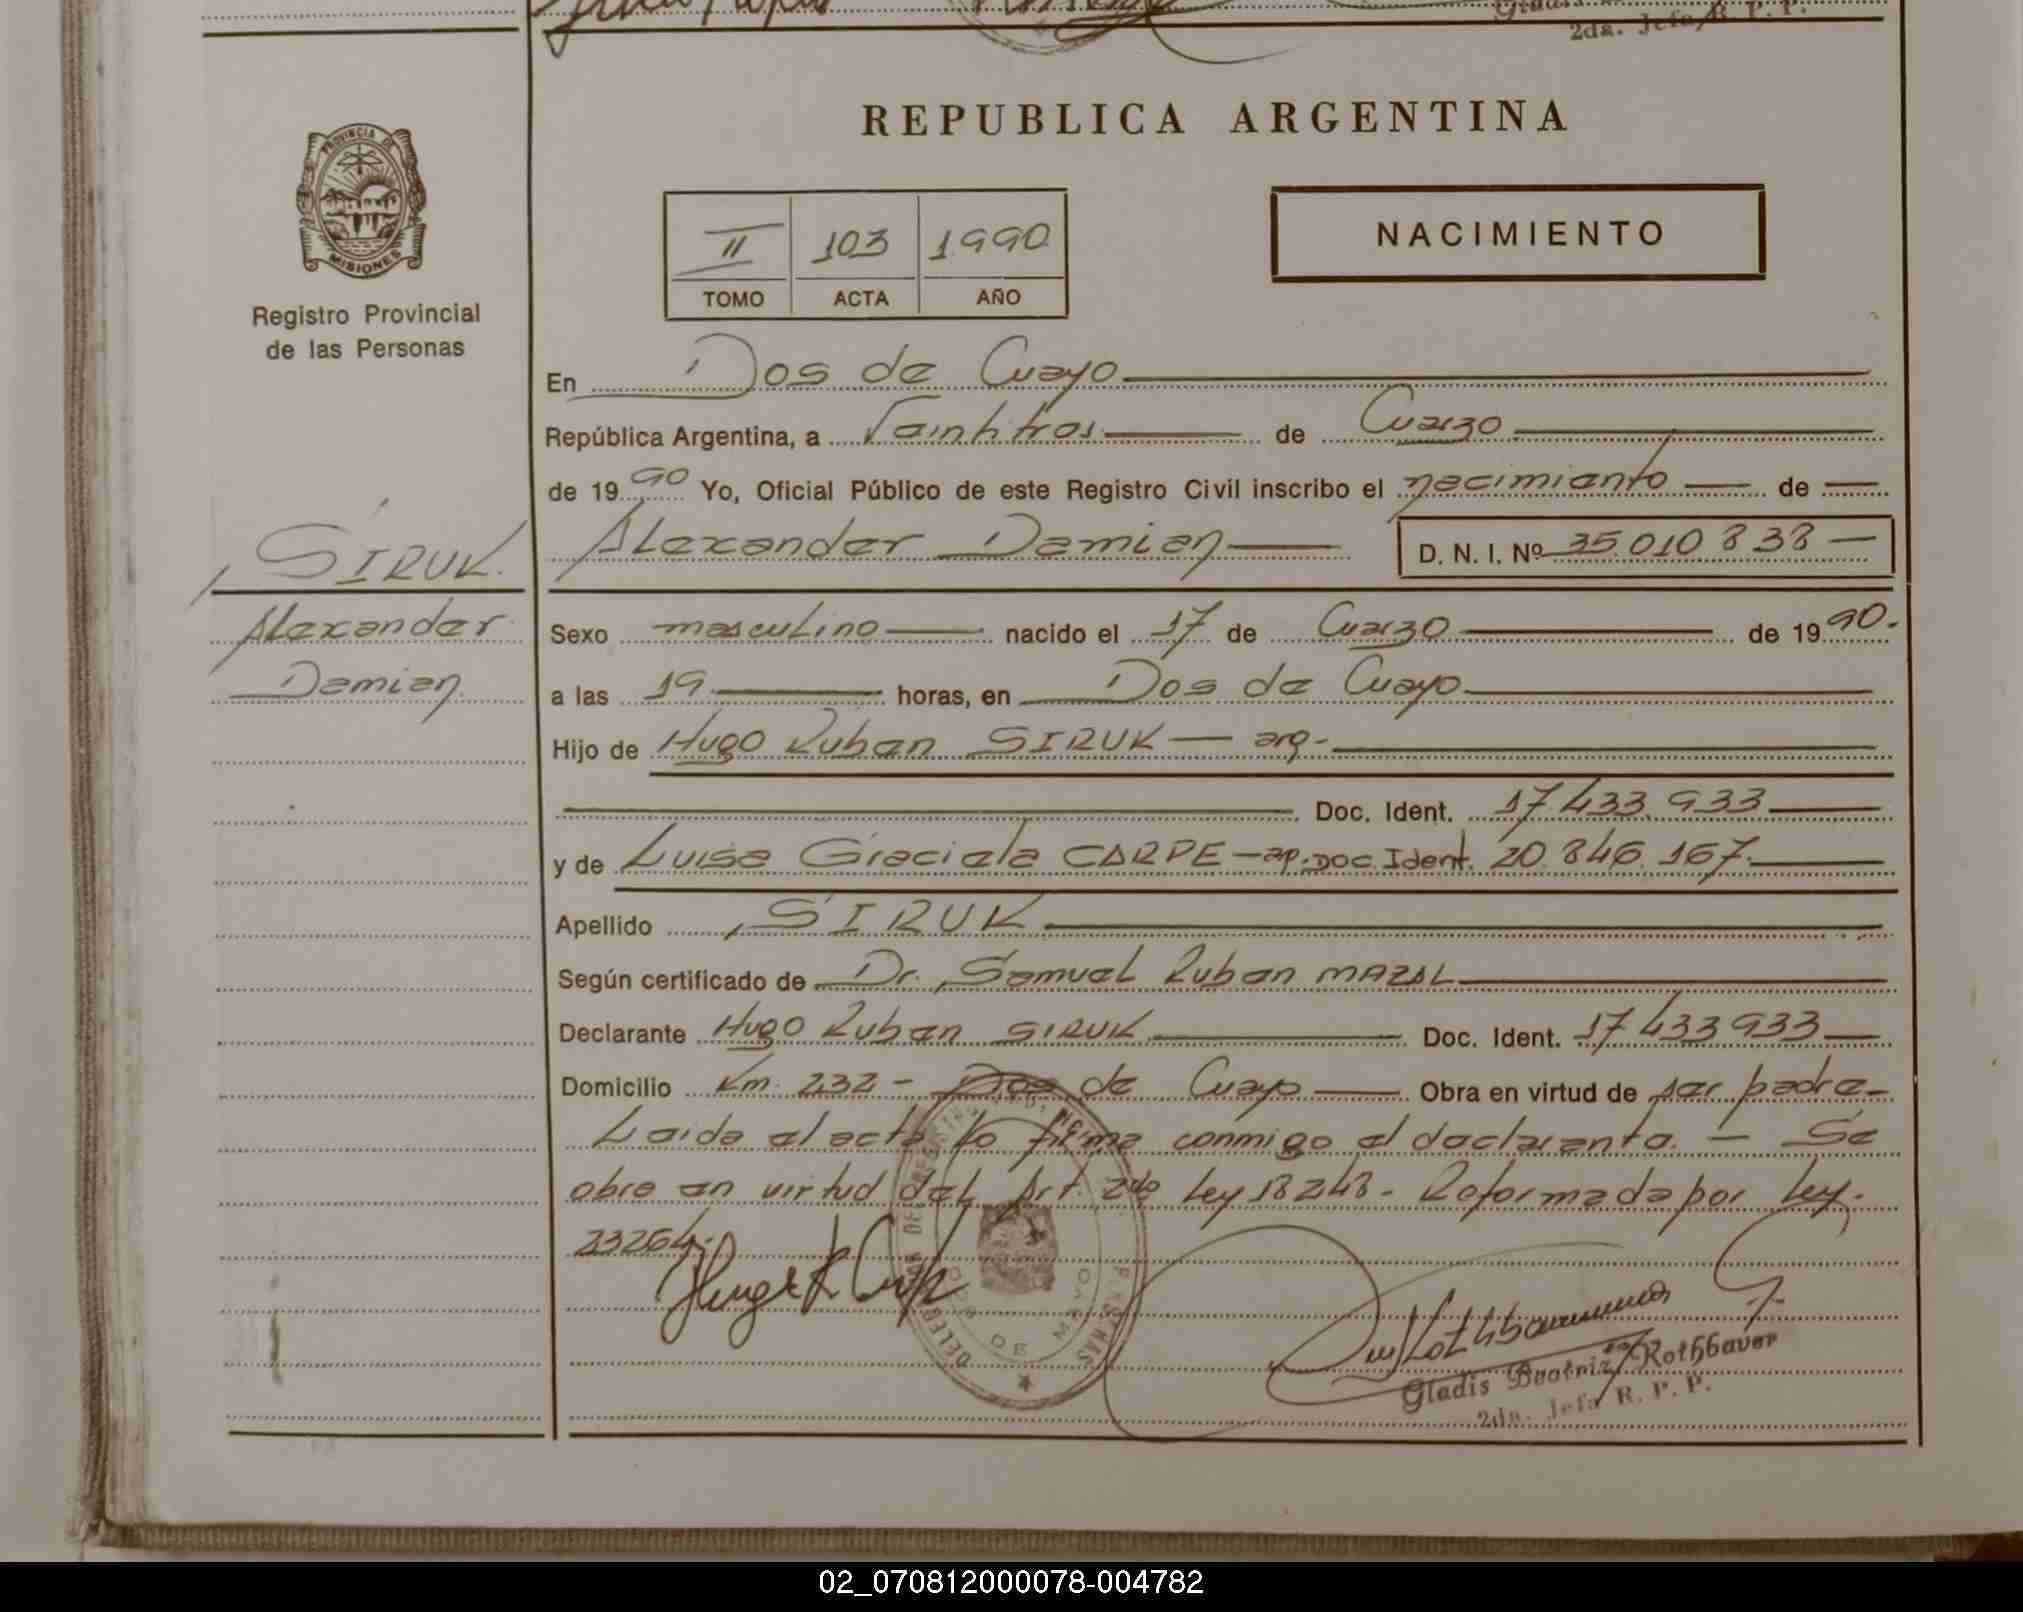 2da. Jefa R. P. P.
REPUBLICA ARGENTINA
PROVINCIA DE
MISIONES
Registro Provincial
de las Personas
II 103 1990
TOMO ACTA AÑO
NACIMIENTO
En Dos de Mayo
República Argentina, a Veintitres de Marzo
de 1990 Yo, Oficial Público de este Registro Civil inscribo el nacimiento de
SIRUK
Alexander Damian D. N. I. Nº 35.010.838
Alexander
Damian
Sexo masculino nacido el 17 de Marzo de 1990.
a las 19 horas, en Dos de Mayo
Hijo de Hugo Ruben SIRUK — arg.
Doc. Ident. 17.433.933
y de Luisa Graciela CARPE - ap. Doc. Ident. 20.846.167.
Apellido SIRUK
Según certificado de Dr. Samuel Ruben MAZAL
Declarante Hugo Ruben SIRUK Doc. Ident. 17.433.933
Domicilio Km. 232 - Dos de Mayo Obra en virtud de ser padre-
Leida el acta lo firma conmigo el declarante. — Se
obra en virtud del Art. 2do Ley 18248 - Reformada por Ley.
23264.
Gladis Beatriz Rothbauer
2da. Jefa R. P. P.
02_070812000078-004782